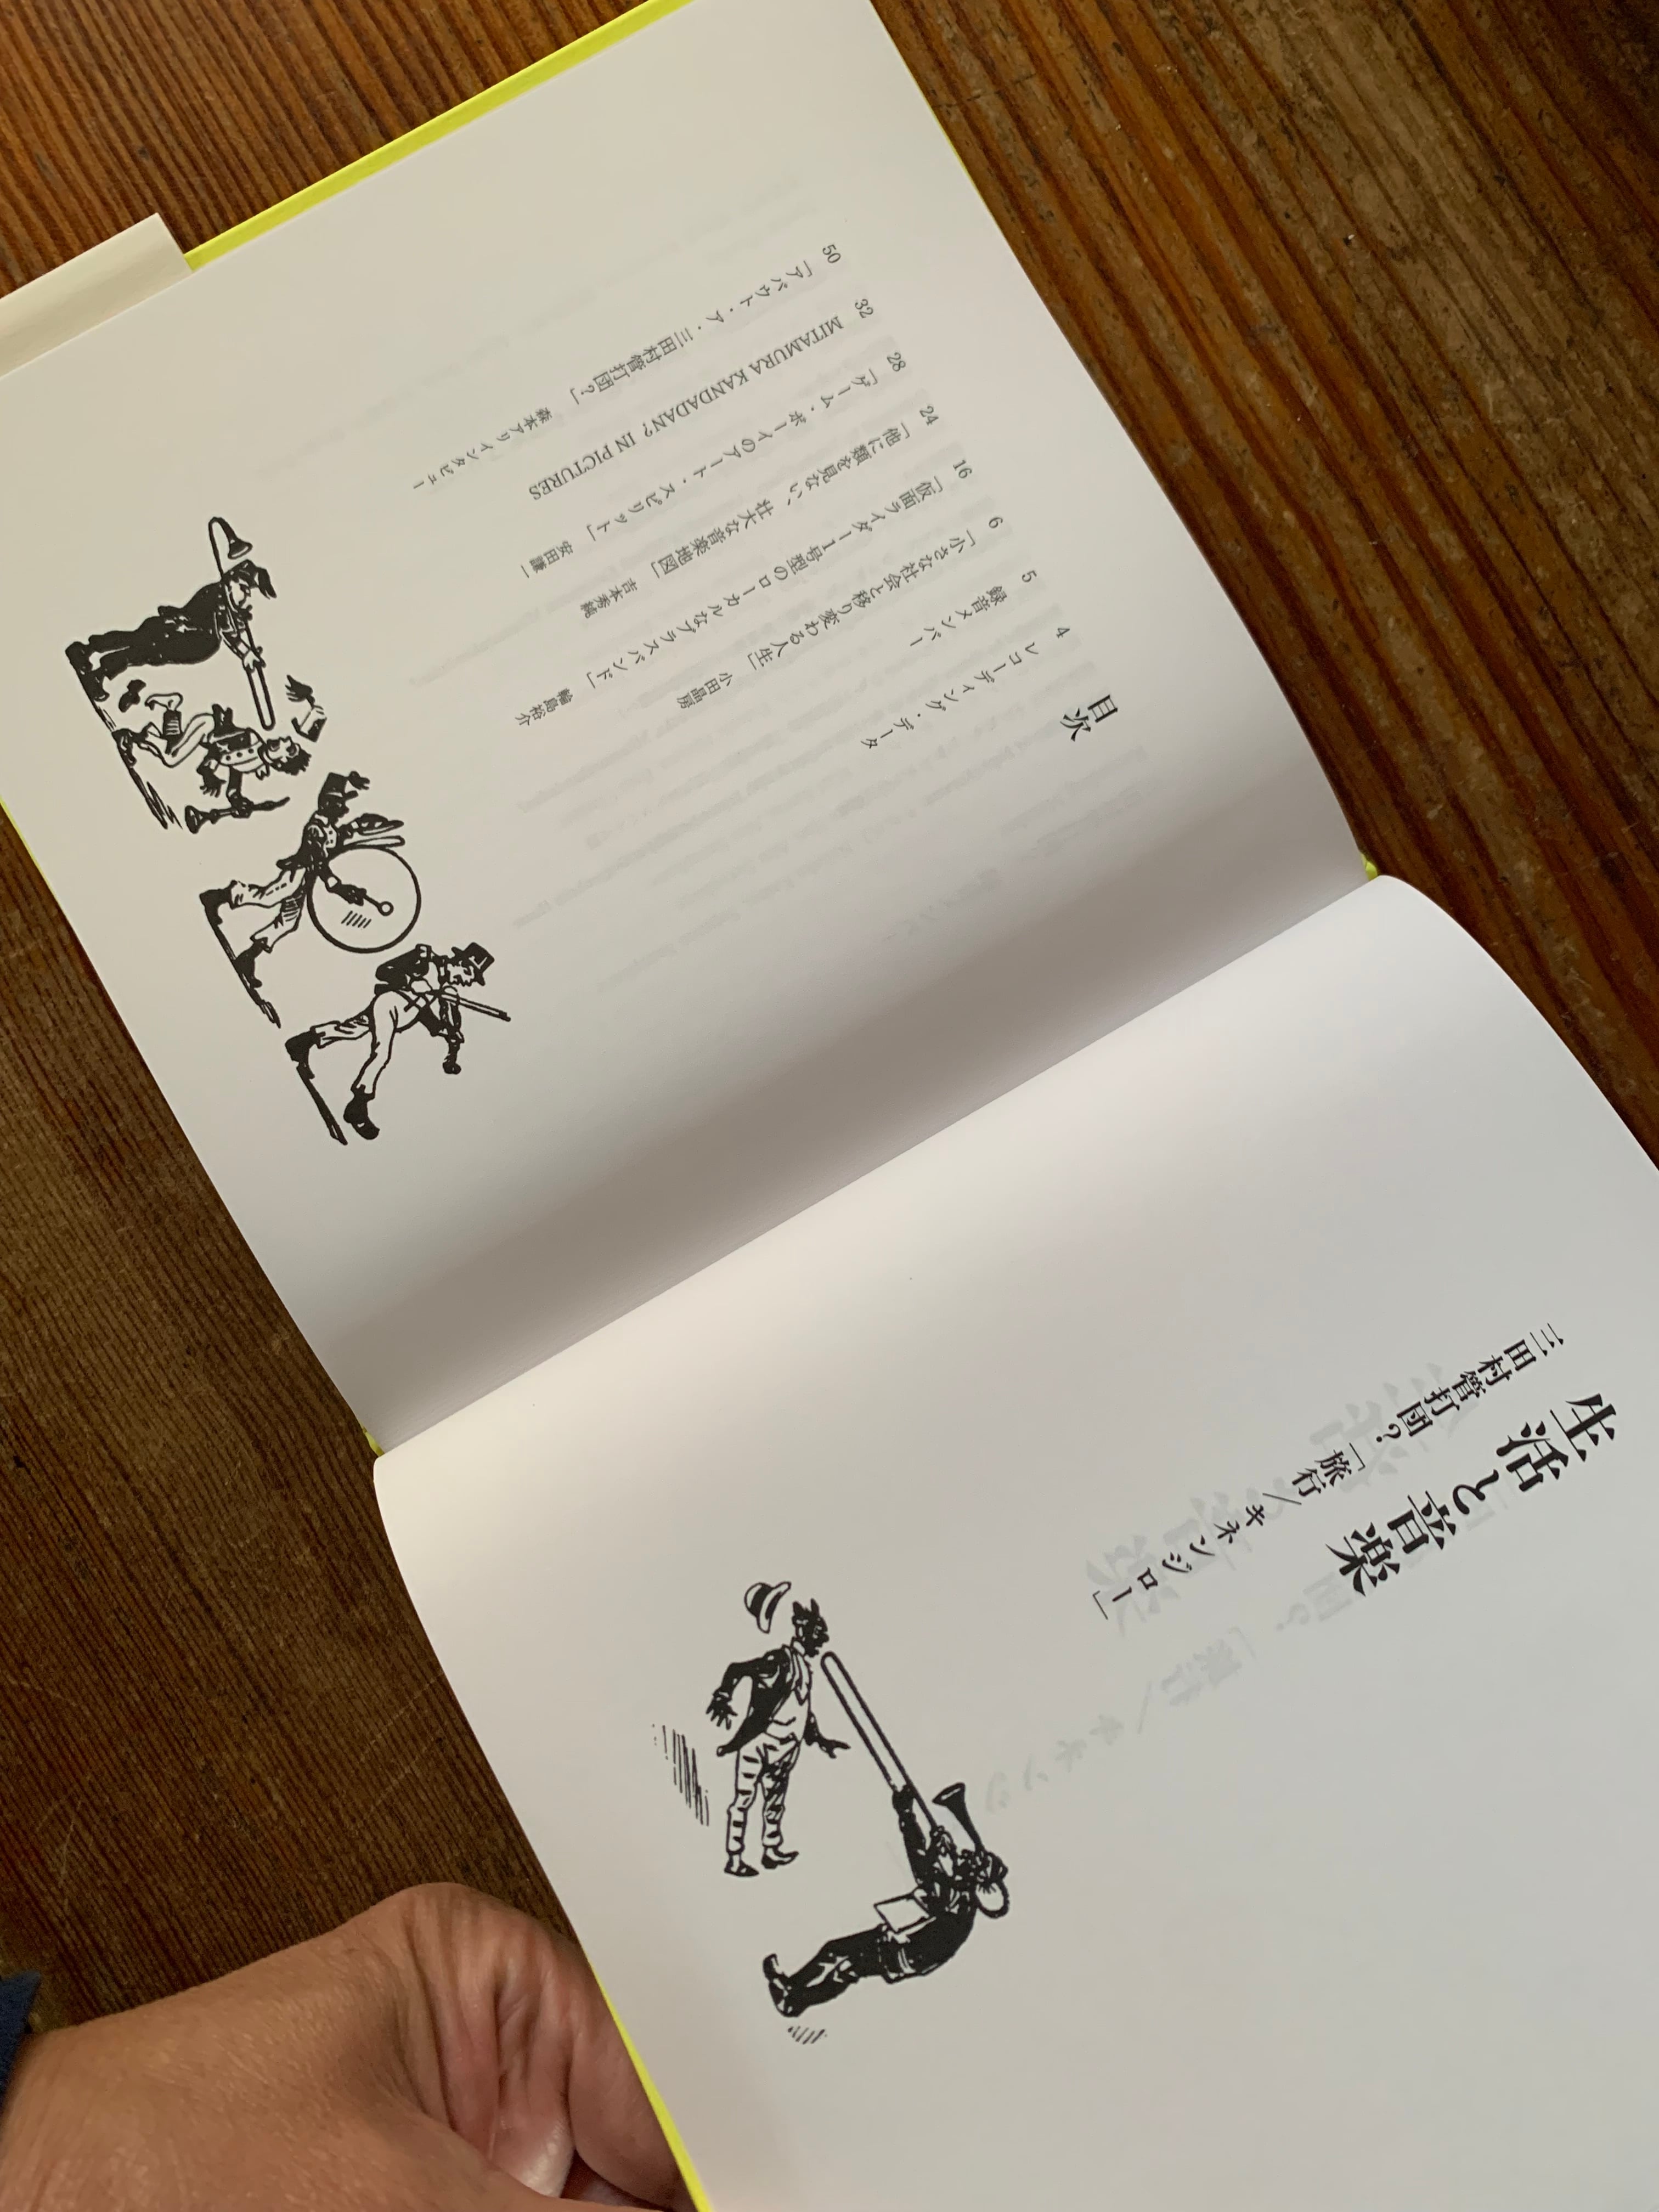 目次
4 レコーディング・データ
5 録音メンバー
6 「小さな社会と移り変わる人生」 小田晶房
16 「仮面ライダー1号型のローカルなブラスバンド」 輪島裕介
24 「他に類を見ない、壮大な音楽地図」 吉本秀純
28 「ゲーム・ボーイのアート・スピリット」 安田謙一
32 MITAMURA KANDADAN? IN PICTURES
50 「アバウト・ア・三田村管打団?」 森本アリインタビュー
生活と音楽
三田村管打団?「旅行/キネンジロー」